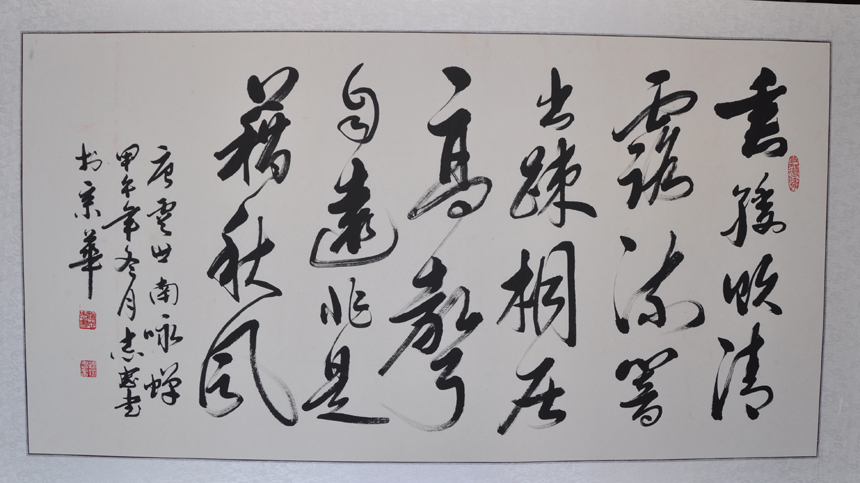 垂緌飲清
露流響
出疎桐居
高聲
自遠非是
藉秋风
唐虞世南咏蝉
甲午年冬月志书
於京華